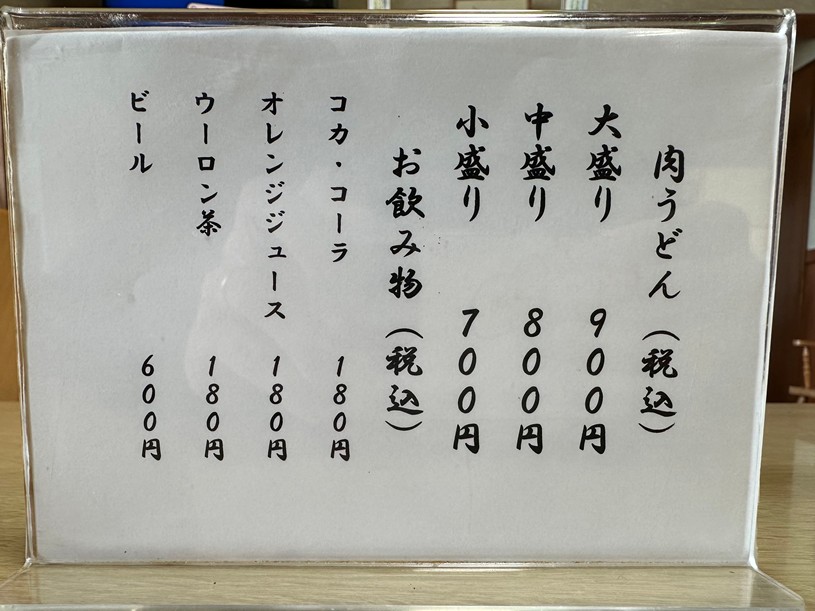 肉うどん(税込)
大盛り 900円
中盛り 800円
小盛り 700円
お飲み物(税込)
コカ・コーラ 180円
オレンジジュース 180円
ウーロン茶 180円
ビール 600円